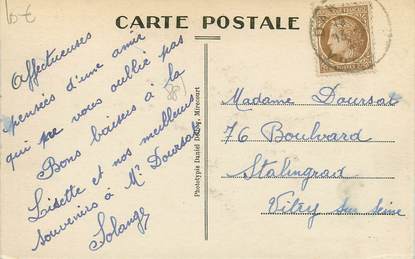 10€
CARTE POSTALE
Affectueuses
pensées d'une amie
qui ne vous oublie pas
Bons baisers à la
Lisette et nos meilleurs
souvenirs à Mr Doursat
Solange
(88)
Phototypie Daniel Mirecourt
Madame Doursat
76 Boulvard
Stalingrad
Vitry sur seine